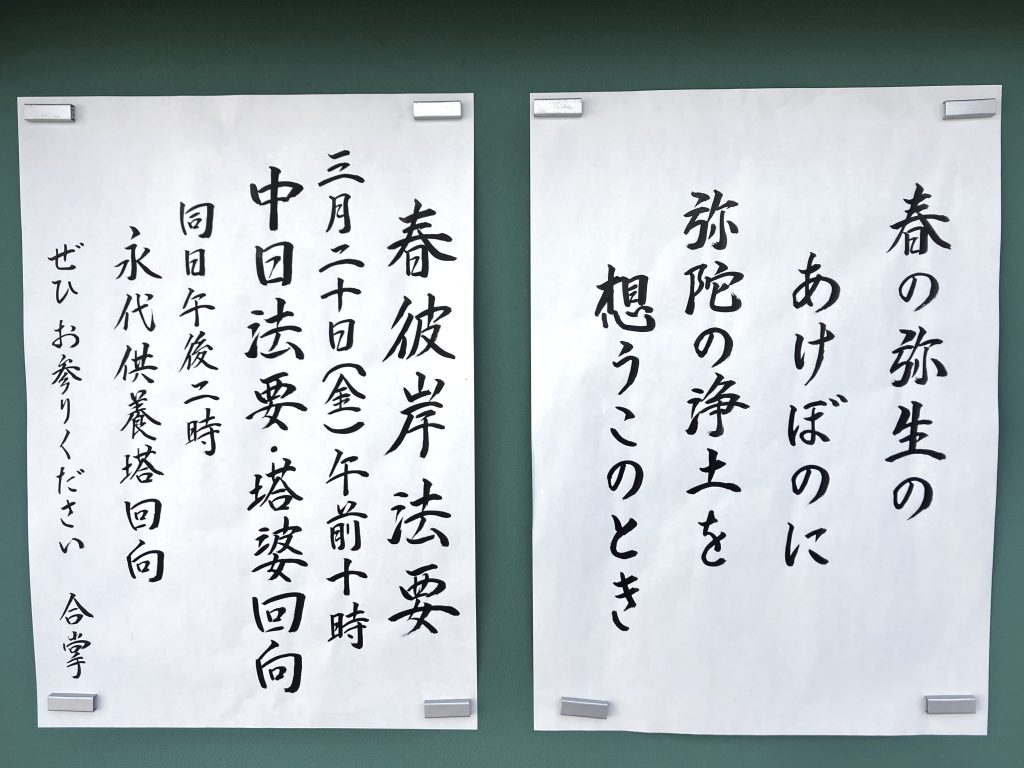 春の弥生の
あけぼのに
弥陀の浄土を
想うこのとき
春彼岸法要
三月二十日(金)午前十時
中日法要・塔婆回向
同日午後二時
永代供養塔回向
ぜひお参りください 合掌